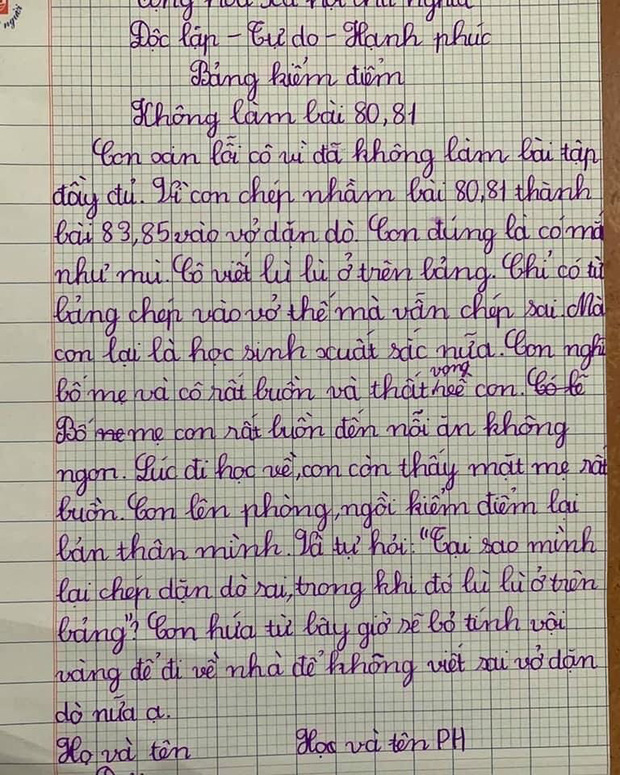 người
Cộng hòa xã hội chủ nghĩa
Độc lập – Tự do – Hạnh phúc
Bảng kiểm điểm
Không làm bài 80,81
Con xin lỗi cô vì đã không làm bài tập
đầy đủ. Vì con chép nhầm bài 80,81 thành
bài 83,85 vào vở dặn dò. Con đúng là có mắ
như mù. Cô viết lù lù ở trên bảng. Chỉ có từ
bảng chép vào vở thế mà vẫn chép sai. Mà
con lại là học sinh xuất sắc nữa. Con nghĩ
bố mẹ và cô rất buồn và thất vọng về con. Có lẽ
Bố me mẹ con rất buồn đến nỗi ăn không
ngon. Lúc đi học về, con còn thấy mặt mẹ rất
buồn. Con lên phòng, ngồi kiểm điểm lại
bản thân mình. Và tự hỏi: "Tại sao mình
lại chép dặn dò sai, trong khi đó lù lù ở trên
bảng"? Con hứa từ bây giờ sẽ bỏ tính vội
vàng để đi về nhà để không viết sai vở dặn
dò nữa ạ.
Họ và tên Họ và tên PH